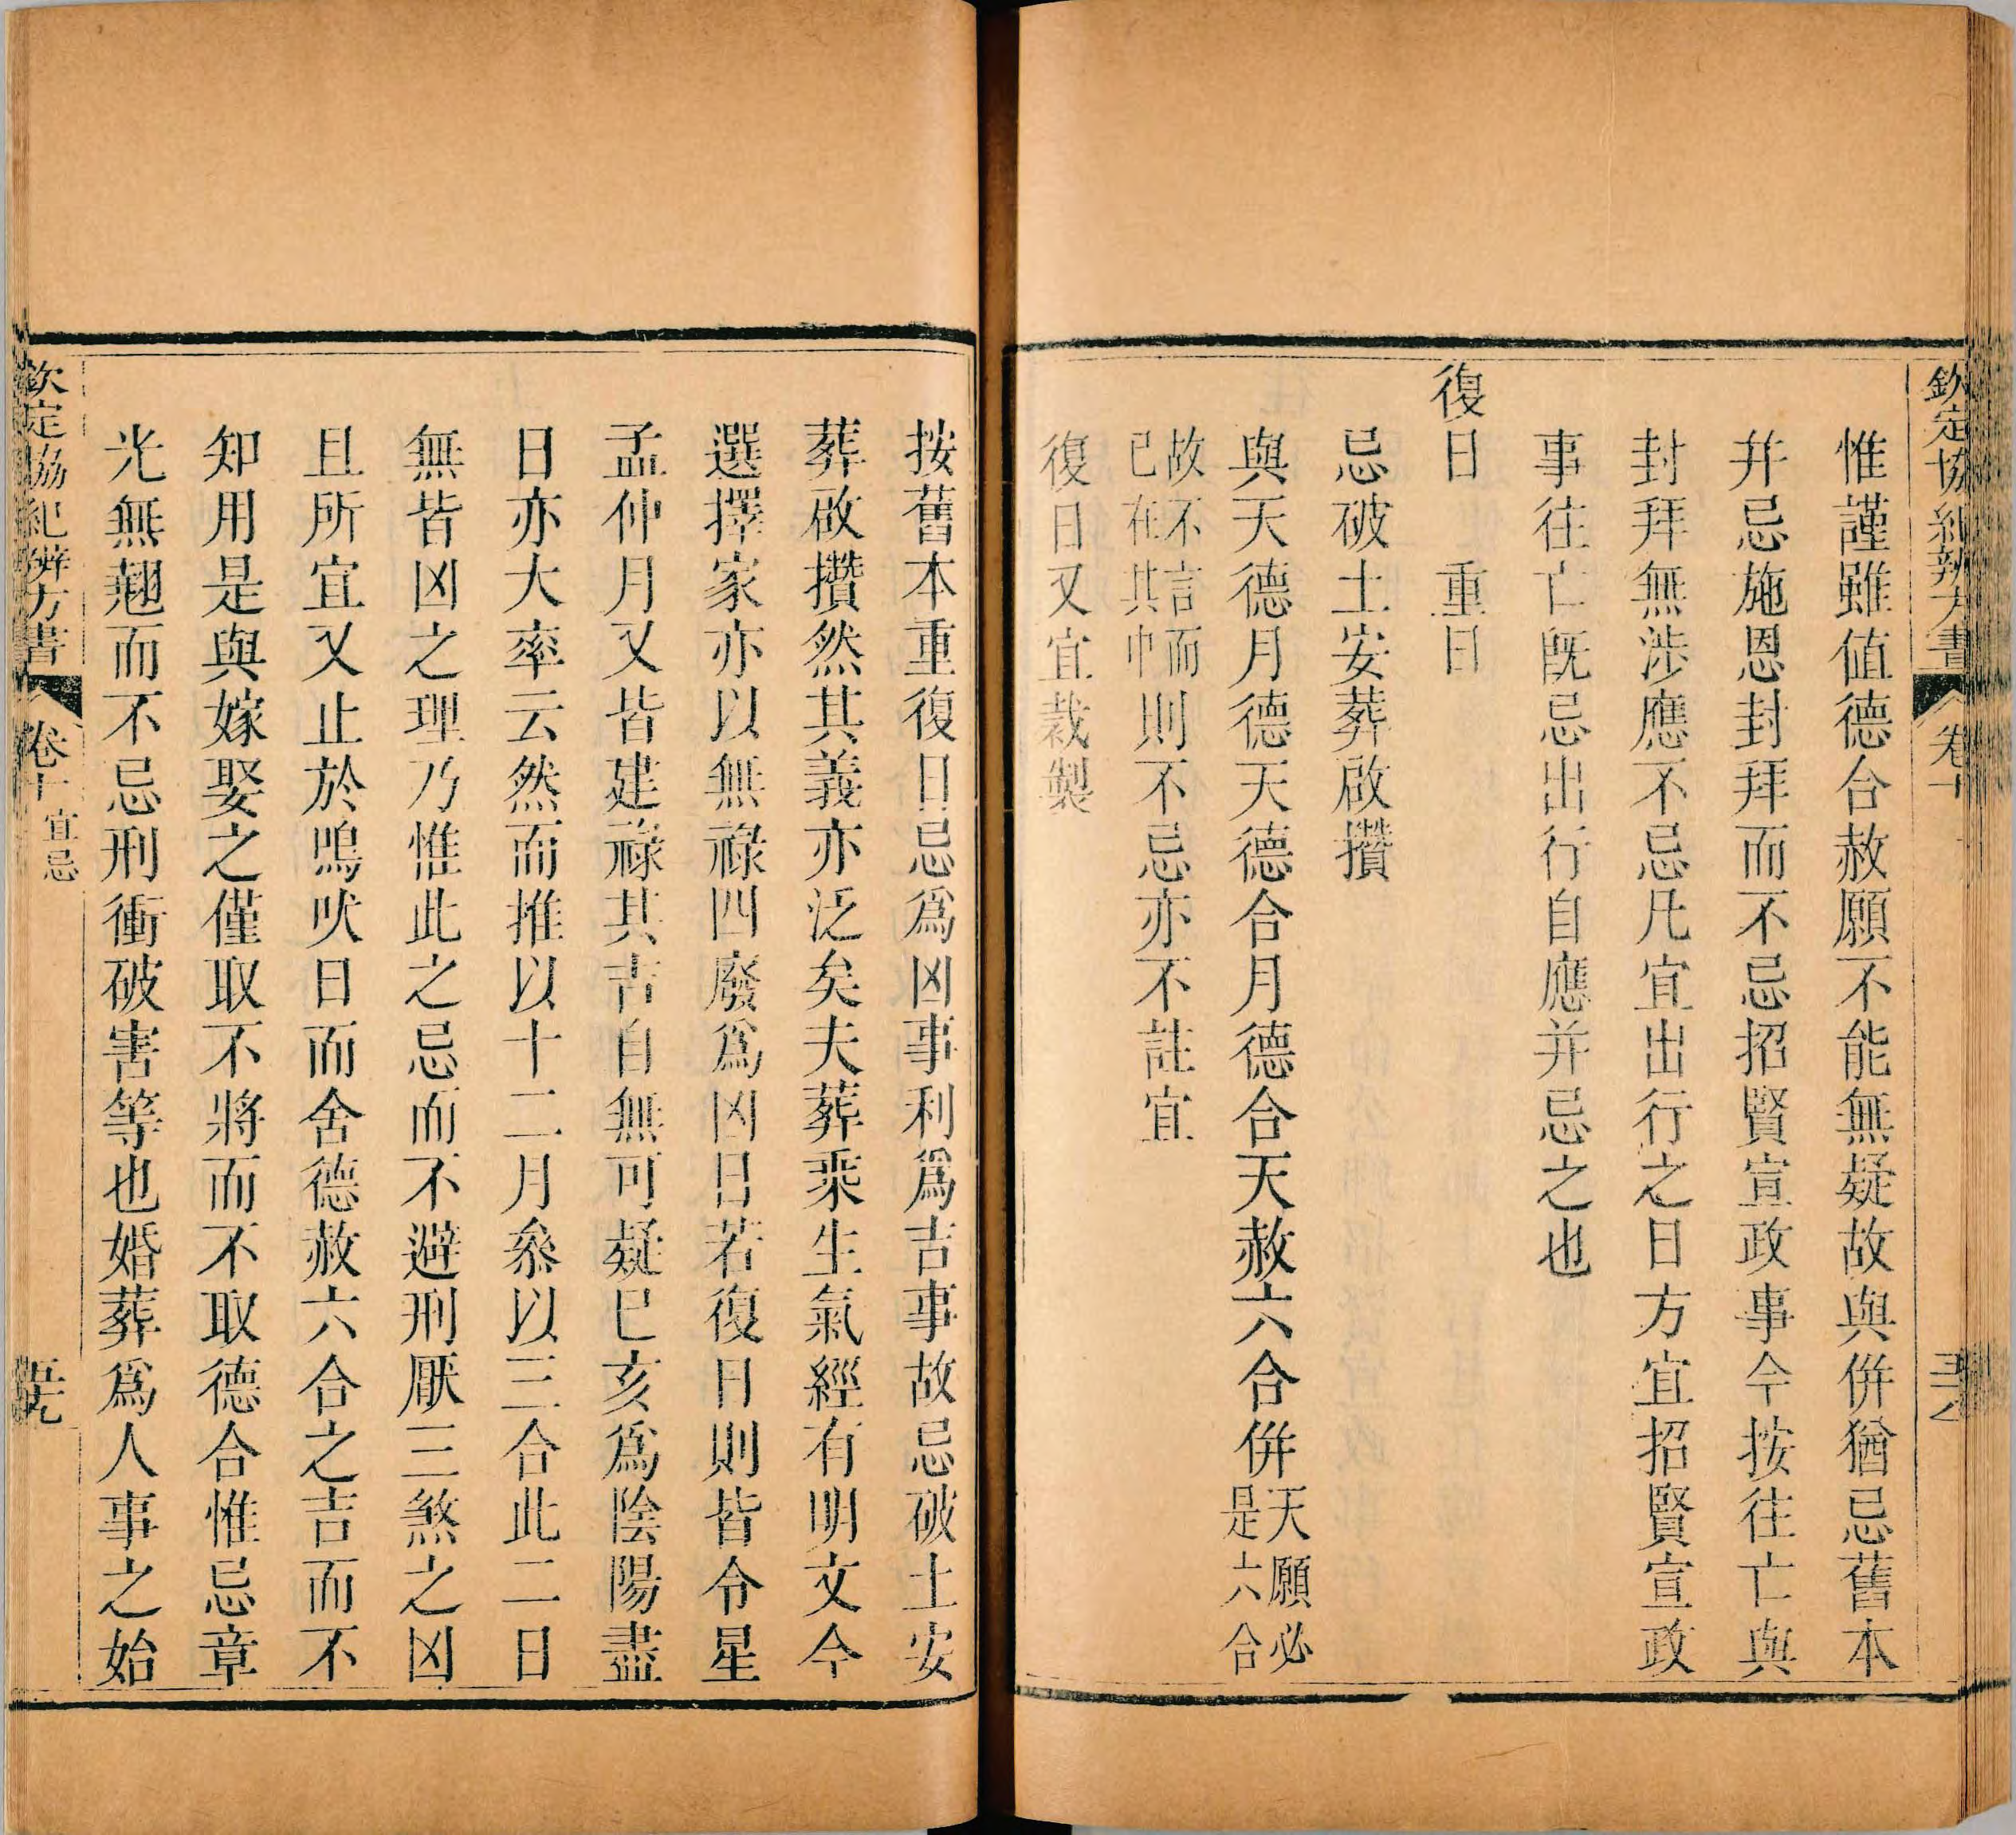 欽定協紀辨方書 卷十
惟謹雖值德合赦願不能無疑故與併猶忌舊本
并忌施恩封拜而不忌招賢宣政事今按往亡與
封拜無涉應不忌凡宜出行之日方宜招賢宣政
事往亡既忌出行自應并忌之也
復日 重日
忌破土安葬啟攢
與天德月德天德合月德合天赦六合併天願必是六合
故不言而已在其中則不忌亦不註宜
復日又宜裁製
按舊本重復日忌為凶事利為吉事故忌破土安
葬啟攢然其義亦泛矣夫葬乘生氣經有明文今
選擇家亦以無祿四廢為凶日若復日則皆令星
孟仲月又皆建祿其吉自無可疑巳亥為陰陽盡
日亦大率云然而推以十二月參以三合此二日
無皆凶之理乃惟此之忌而不避刑厭三煞之凶
且所宜又止於鳴吠日而舍德赦六合之吉而不
知用是與嫁娶之僅取不將而不取德合惟忌章
光無翹而不忌刑衝破害等也婚葬為人事之始
欽定協紀辨方書 卷十 宜忌